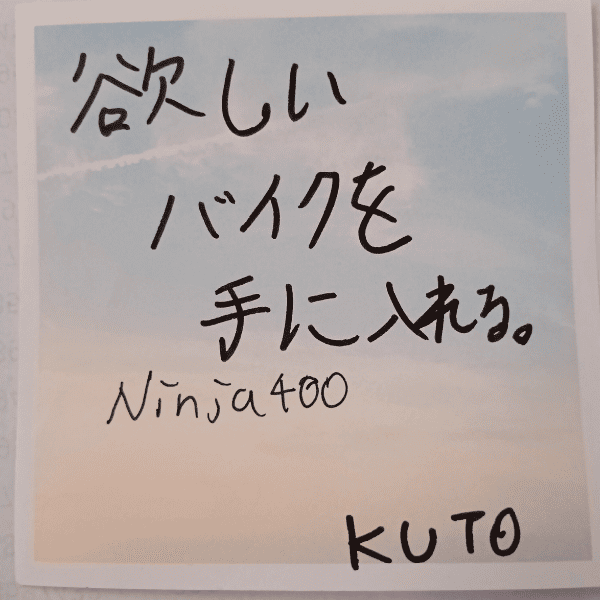 欲しい
バイクを
手に入れる。
Ninja400
KUTO